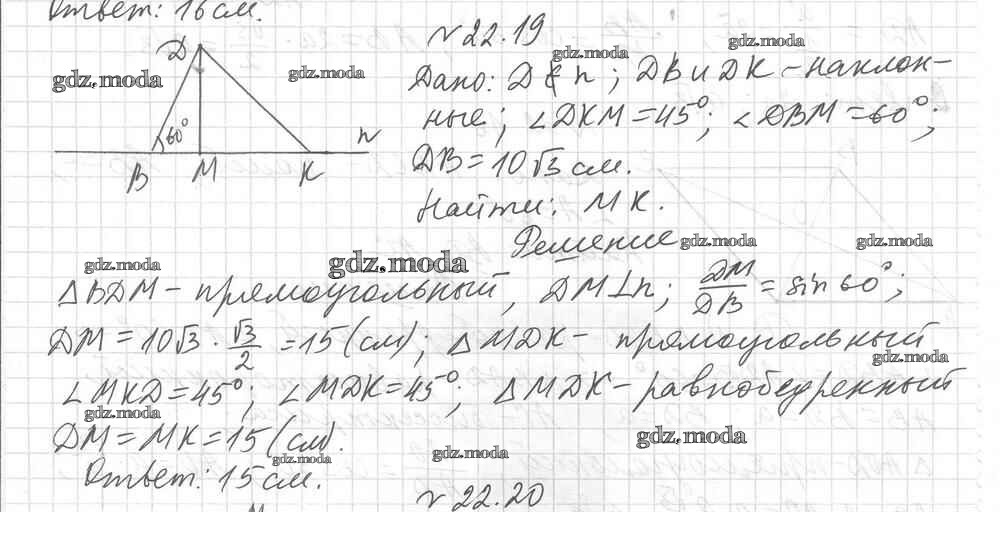 Ответ: 16 см.
№ 22.19
Дано: D ∉ n; DB и DK – наклон-
ные; ∠DKM = 45°; ∠DBM = 60°;
DB = 10√3 см.
Найти: MK.
Решение
D
60°
n
B M K
△BDM – прямоугольный, DM⊥n; DM/DB = sin 60°;
DM = 10√3 · √3/2 = 15 (см); △MDK – прямоугольный
∠MKD = 45°; ∠MDK = 45°; △MDK – равнобедренный
DM = MK = 15 (см).
Ответ: 15 см.
№ 22.20
gdz.moda
gdz.moda
gdz.moda
gdz.moda
gdz.moda
gdz.moda
gdz.moda
gdz.moda
gdz.moda
gdz.moda
gdz.moda
gdz.moda
gdz.moda